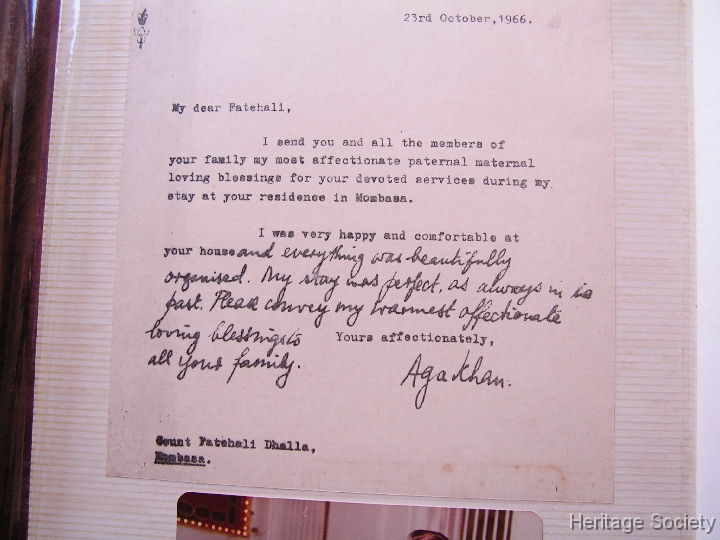 23rd October, 1966.
My dear Fatehali,
I send you and all the members of
your family my most affectionate paternal maternal
loving blessings for your devoted services during my
stay at your residence in Mombasa.
I was very happy and comfortable at
your house and everything was beautifully
organised. My stay was perfect, as always in
past. Please convey my warmest affectionate
loving blessings to
all your family.
Yours affectionately,
Aga Khan.
Count Fatehali Dhalla,
Mombasa.
Heritage Society